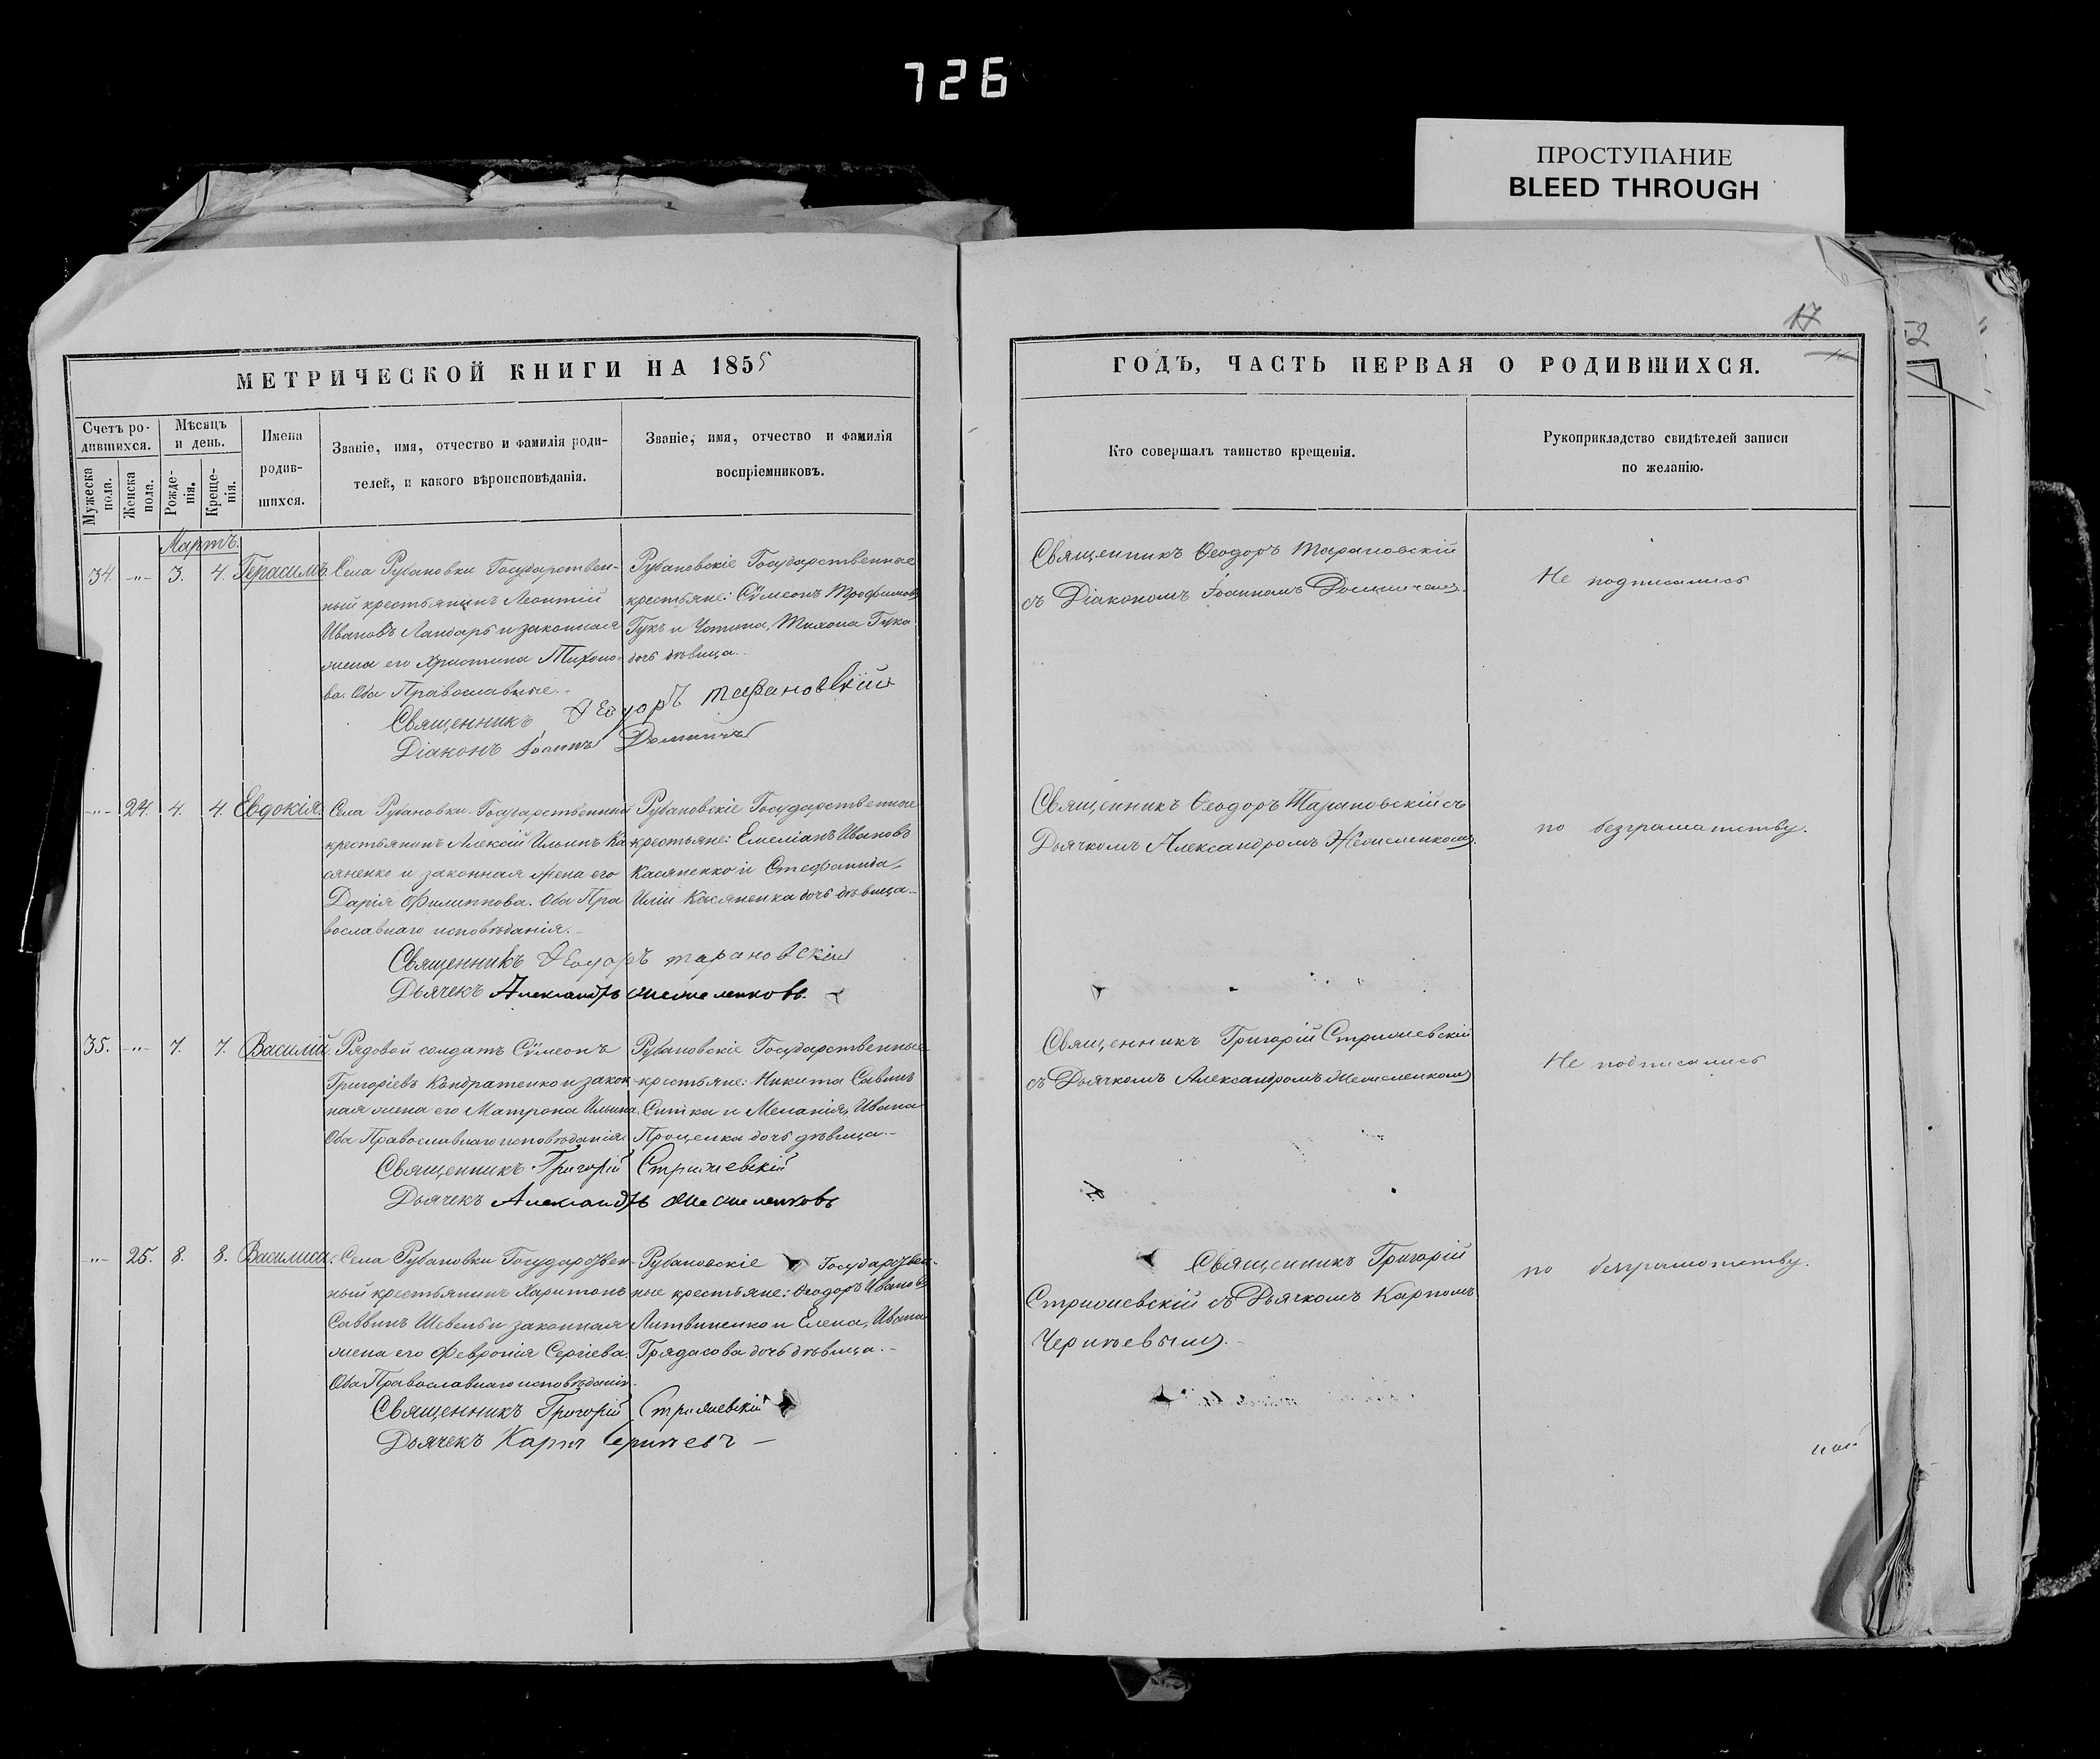 726
ПРОСТУПАНИЕ
BLEED THROUGH
17
52
МЕТРИЧЕСКОЙ КНИГИ НА 1855
Счетъ ро-
дившихся.
Мужеска
пола.
Женска
пола.
Мѣсяцъ
и день.
Рожде-
нія.
Креще-
нія.
Имена
родив-
шихся.
Званіе, имя, отчество и фамилія роди-
телей, и какого вѣроисповѣданія.
Званіе, имя, отчество и фамилія
воспріемниковъ.
Мартъ.
34. -"- 3. 4. Герасимъ.
Села Рубановки Государствен-
ный крестьянинъ Леонтій
Ивановъ Ландарь и законная
жена его Христина Тихоно-
ва. Оба Православные.-
Рубановскіе Государственные
крестьяне: Сѵмеонъ Трофимовъ
Гукъ и Тихона Гука
дочь дѣвица.-
Священникъ Ѳеодоръ Тарановскій
Діаконъ Іоаннъ
-"- 24. 4. 4. Евдокія.
Села Рубановки Государственный
крестьянинъ Алексій Ильинъ Ка-
сяненко и законная жена его
Дарія Филиппова. Оба Пра
вославнаго исповѣданія.-
Рубановскіе Государственные
крестьяне: Емеліанъ Ивановъ
Касяненко и Стефанида,
Иліи Касяненка дочь дѣвица.-
Священникъ Ѳеодоръ Тарановскій
Дьячекъ Александръ
35. -"- 7. 7. Василій.
Рядовой солдатъ Сѵмеонъ
Григоріевъ Кондратенко и закон-
ная жена его Матрона Ильина.
Оба Православнаго исповѣданія
Рубановскіе Государственные
крестьяне: Никита Савинъ
Ситка и Меланія, Ивана
Проценка дочь дѣвица.-
Священникъ Григорій Стрижевскій
Дьячекъ Александръ
-"- 25. 8. 8. Василиса.
Села Рубановки Государствен-
ный крестьянинъ Харитонъ
Саввинъ Шевель и законная
жена его Февронія Сергіева.
Оба Православнаго исповѣданія.
Рубановскіе Государствен-
ные крестьяне: Ѳеодоръ Ивановъ
Литвиненко и Елена, Ивана
Грядасова дочь дѣвица.-
Священникъ Григорій Стрижевскій
Дьячекъ Карпъ
ГОДЪ, ЧАСТЬ ПЕРВАЯ О РОДИВШИХСЯ.
Кто совершалъ таинство крещенія.
Рукоприкладство свидѣтелей записи
по желанію.
Священникъ Ѳеодоръ Тарановскій
съ Діакономъ Іоанномъ
Не подписались
Священникъ Ѳеодоръ Тарановскій съ
Дьячкомъ Александромъ
по безграмотству.
Священникъ Григорій Стрижевскій
съ Дьячкомъ Александромъ
Не подписались
Священникъ Григорій
Стрижевскій съ Дьячкомъ Карпомъ
по безграмотству.